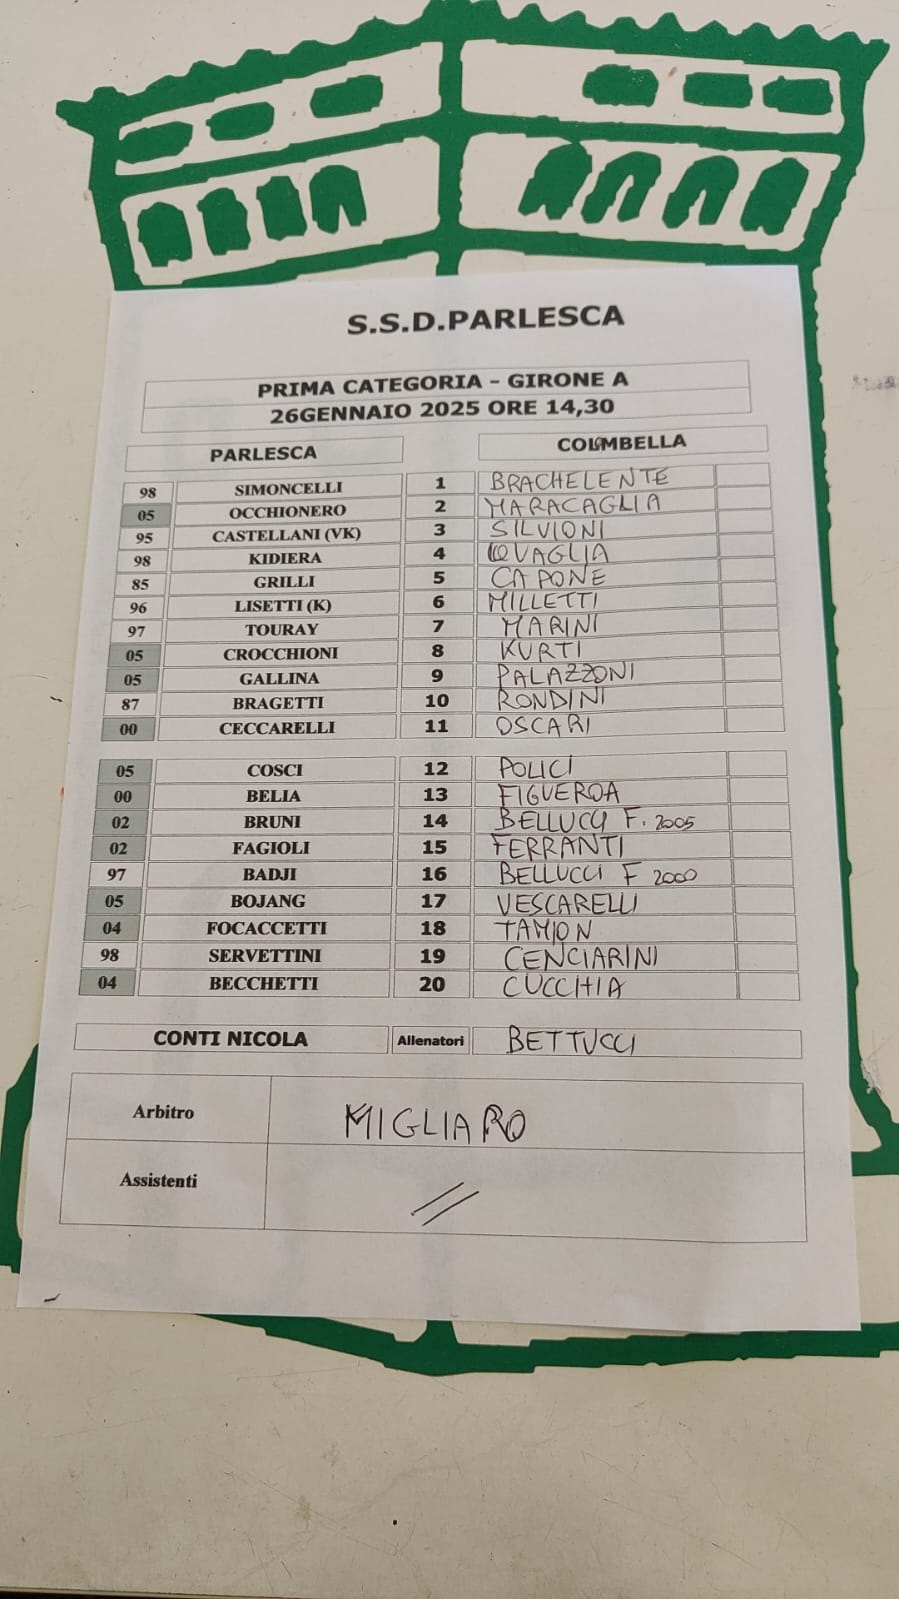 S.S.D.PARLESCA
PRIMA CATEGORIA - GIRONE A
26GENNAIO 2025 ORE 14,30
PARLESCA COLOMBELLA
98 SIMONCELLI 1 BRACHELENTE
05 OCCHIONERO 2 MARACAGLIA
95 CASTELLANI (VK) 3 SILVIONI
98 KIDIERA 4
85 GRILLI 5 CAPONE
96 LISETTI (K) 6 MILLETTI
97 TOURAY 7 MARINI
05 CROCCHIONI 8 KURTI
05 GALLINA 9 PALAZZONI
87 BRAGETTI 10 RONDINI
00 CECCARELLI 11 OSCARI
05 COSCI 12 POLICI
00 BELIA 13 FIGUEROA
02 BRUNI 14 BELLUCCI F. 2005
02 FAGIOLI 15 FERRANTI
97 BADJI 16 BELLUCCI F 2000
05 BOJANG 17 VESCARELLI
04 FOCACCETTI 18 TAMION
98 SERVETTINI 19 CENCIARINI
04 BECCHETTI 20 CUCCHIA
CONTI NICOLA Allenatori BETTUCCI
Arbitro MIGLIARO
Assistenti //